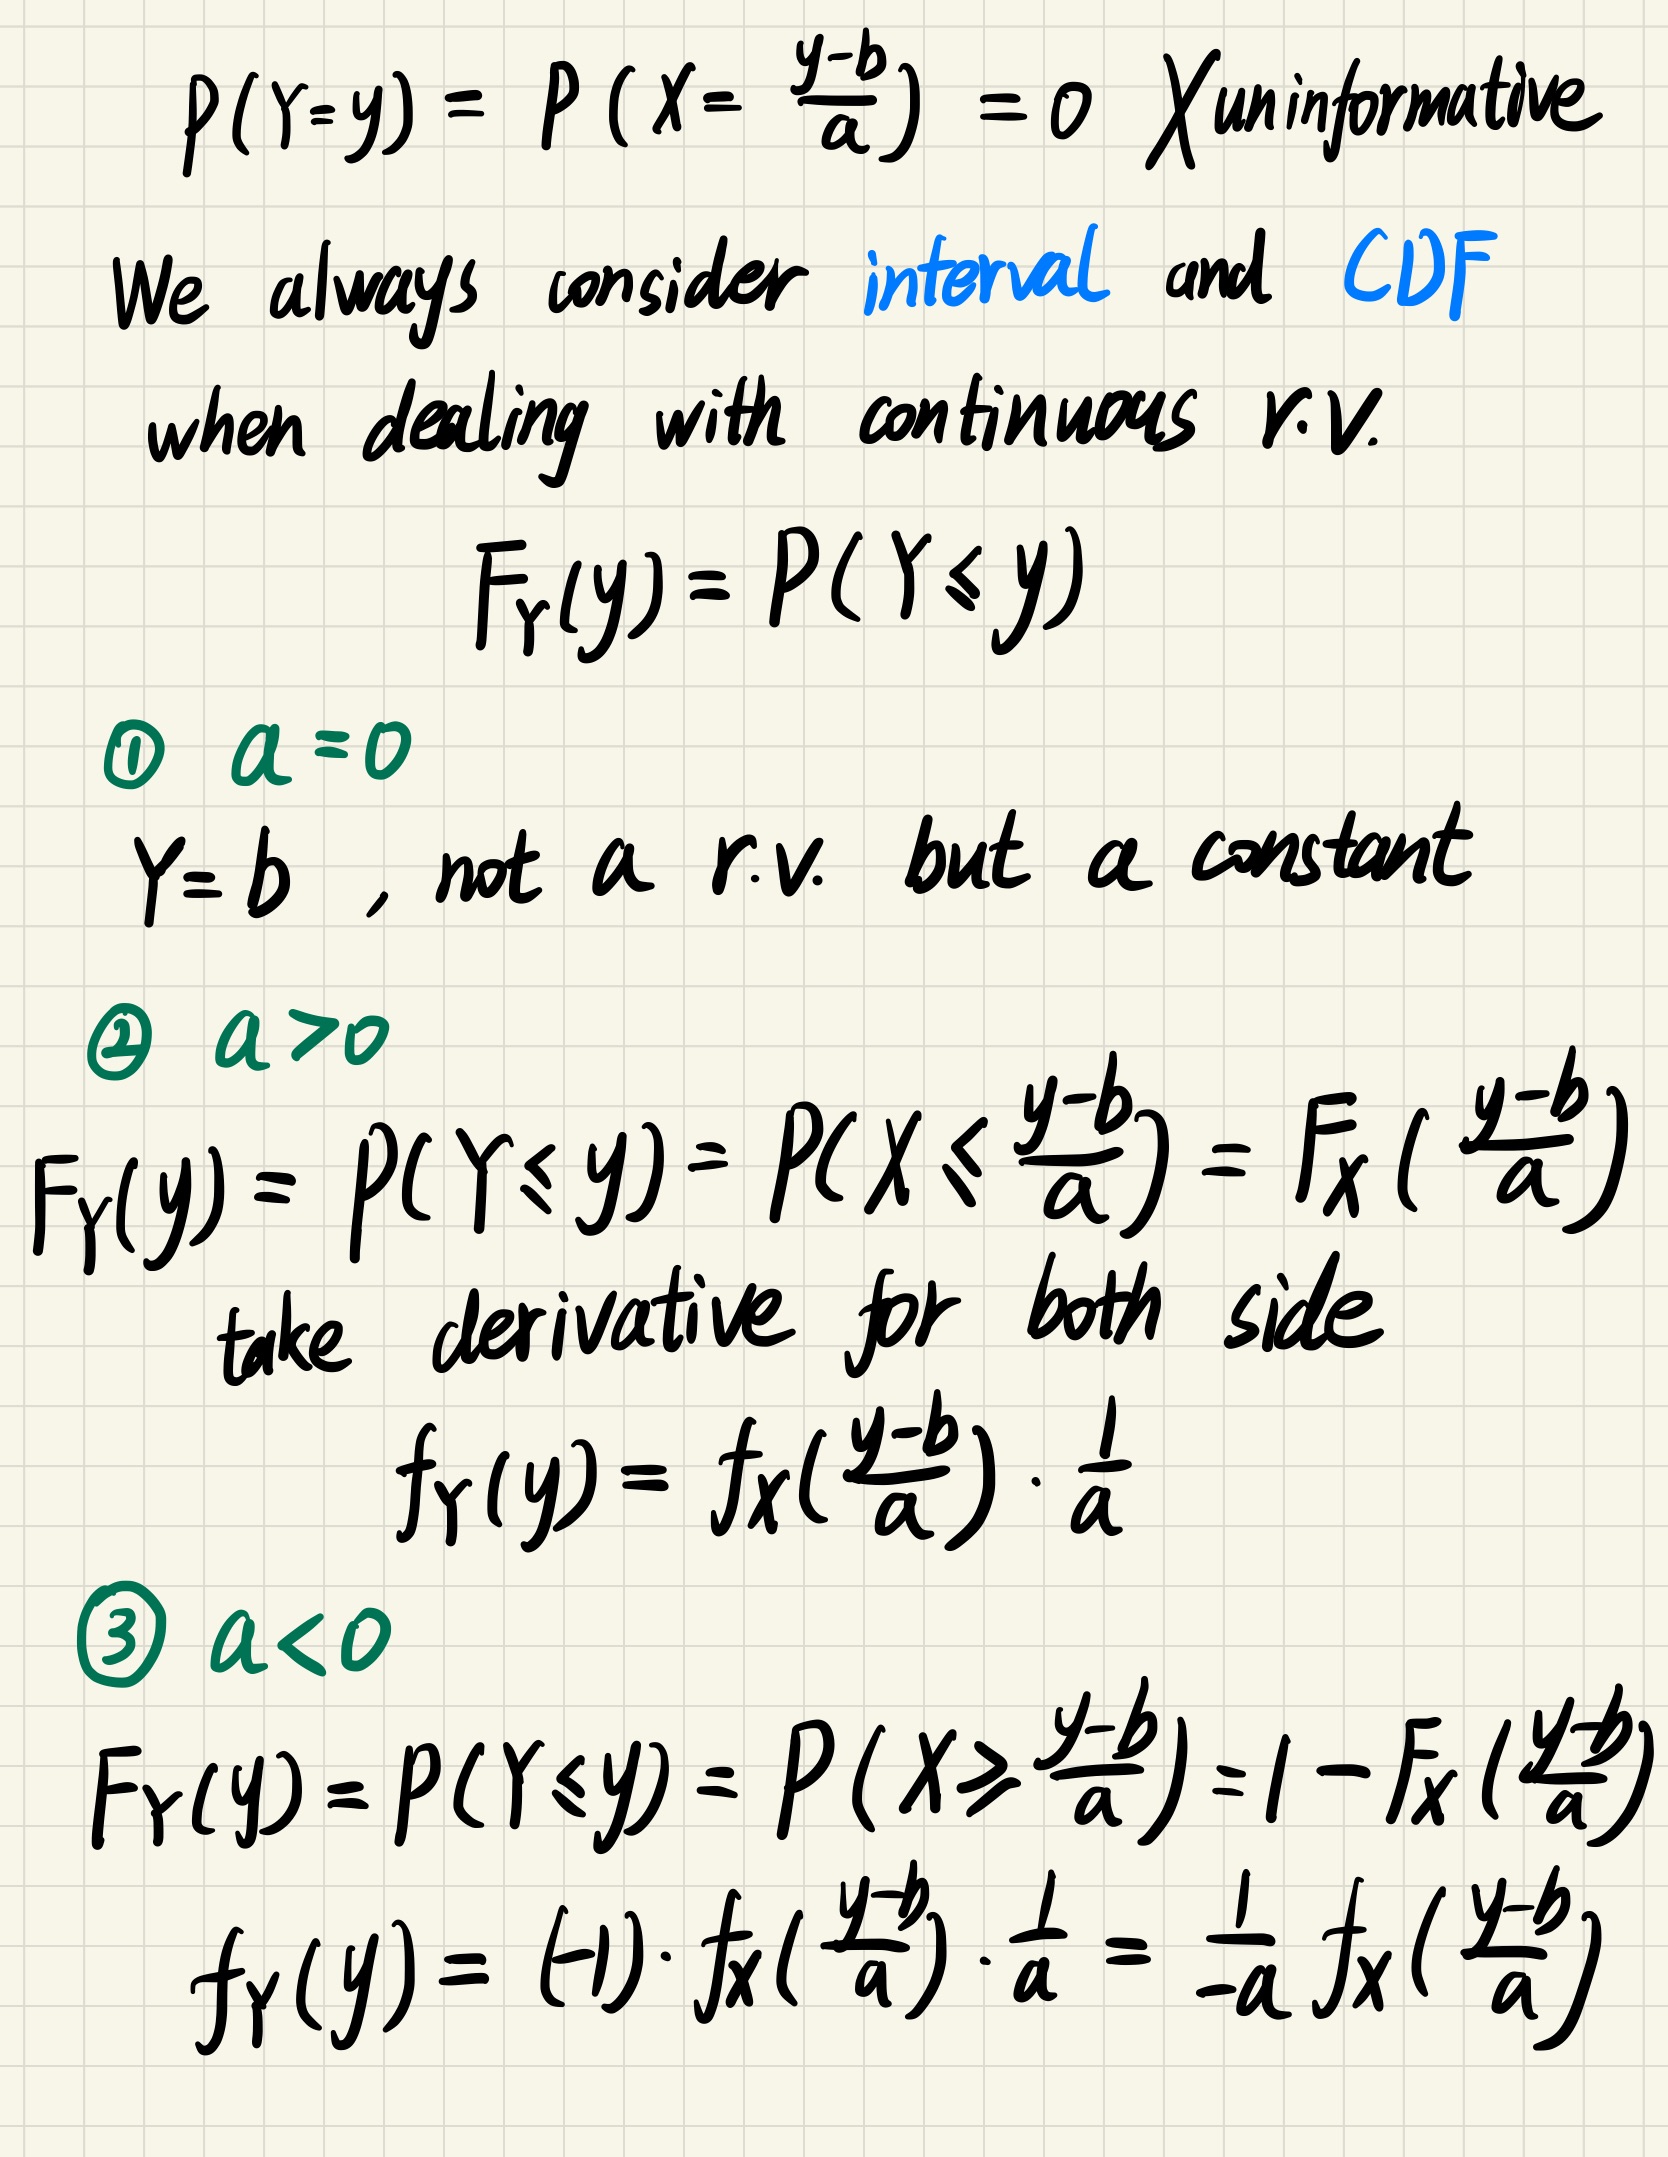 P(Y=y) = P(X = \frac{y-b}{a}) = 0 X uninformative
We always consider interval and CDF
when dealing with continuous r.v.
F_Y(y) = P(Y ≤ y)
① a = 0
Y = b , not a r.v. but a constant
② a > 0
F_Y(y) = P(Y ≤ y) = P(X ≤ \frac{y-b}{a}) = F_X(\frac{y-b}{a})
take derivative for both side
f_Y(y) = f_X(\frac{y-b}{a}) · \frac{1}{a}
③ a < 0
F_Y(y) = P(Y ≤ y) = P(X ≥ \frac{y-b}{a}) = 1 - F_X(\frac{y-b}{a})
f_Y(y) = (-1) · f_X(\frac{y-b}{a}) · \frac{1}{a} = \frac{1}{-a} f_X(\frac{y-b}{a})